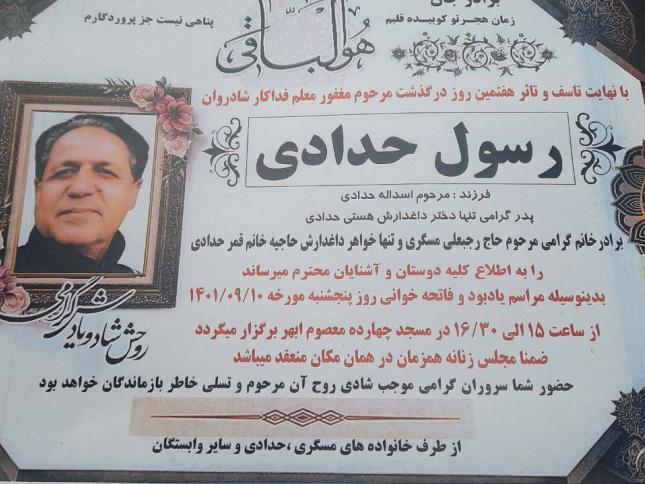 برادر جان
زمان هجر تو کوبیده قلبم
پناهی نیست جز پروردگارم
هوالباقی
با نهایت تاسف و تاثر هفتمین روز درگذشت مرحوم مغفور معلم فداکار شادروان
رسول حدادی
فرزند : مرحوم اسداله حدادی
پدر گرامی تنها دختر داغدارش هستی حدادی
برادرخانم گرامی مرحوم حاج رجبعلی مسگری و تنها خواهر داغدارش حاجیه خانم قمر حدادی
را به اطلاع کلیه دوستان و آشنایان محترم میرساند
بدینوسیله مراسم یادبود و فاتحه خوانی روز پنجشنبه مورخه ۱۴۰۱/۰۹/۱۰
از ساعت ۱۵ الی ۱۶/۳۰ در مسجد چهارده معصوم ابهر برگزار میگردد
ضمنا مجلس زنانه همزمان در همان مکان منعقد میباشد
حضور شما سروران گرامی موجب شادی روح آن مرحوم و تسلی خاطر بازماندگان خواهد بود
از طرف خانواده های مسگری ،حدادی و سایر وابستگان
روحش شاد و یادش گرامی